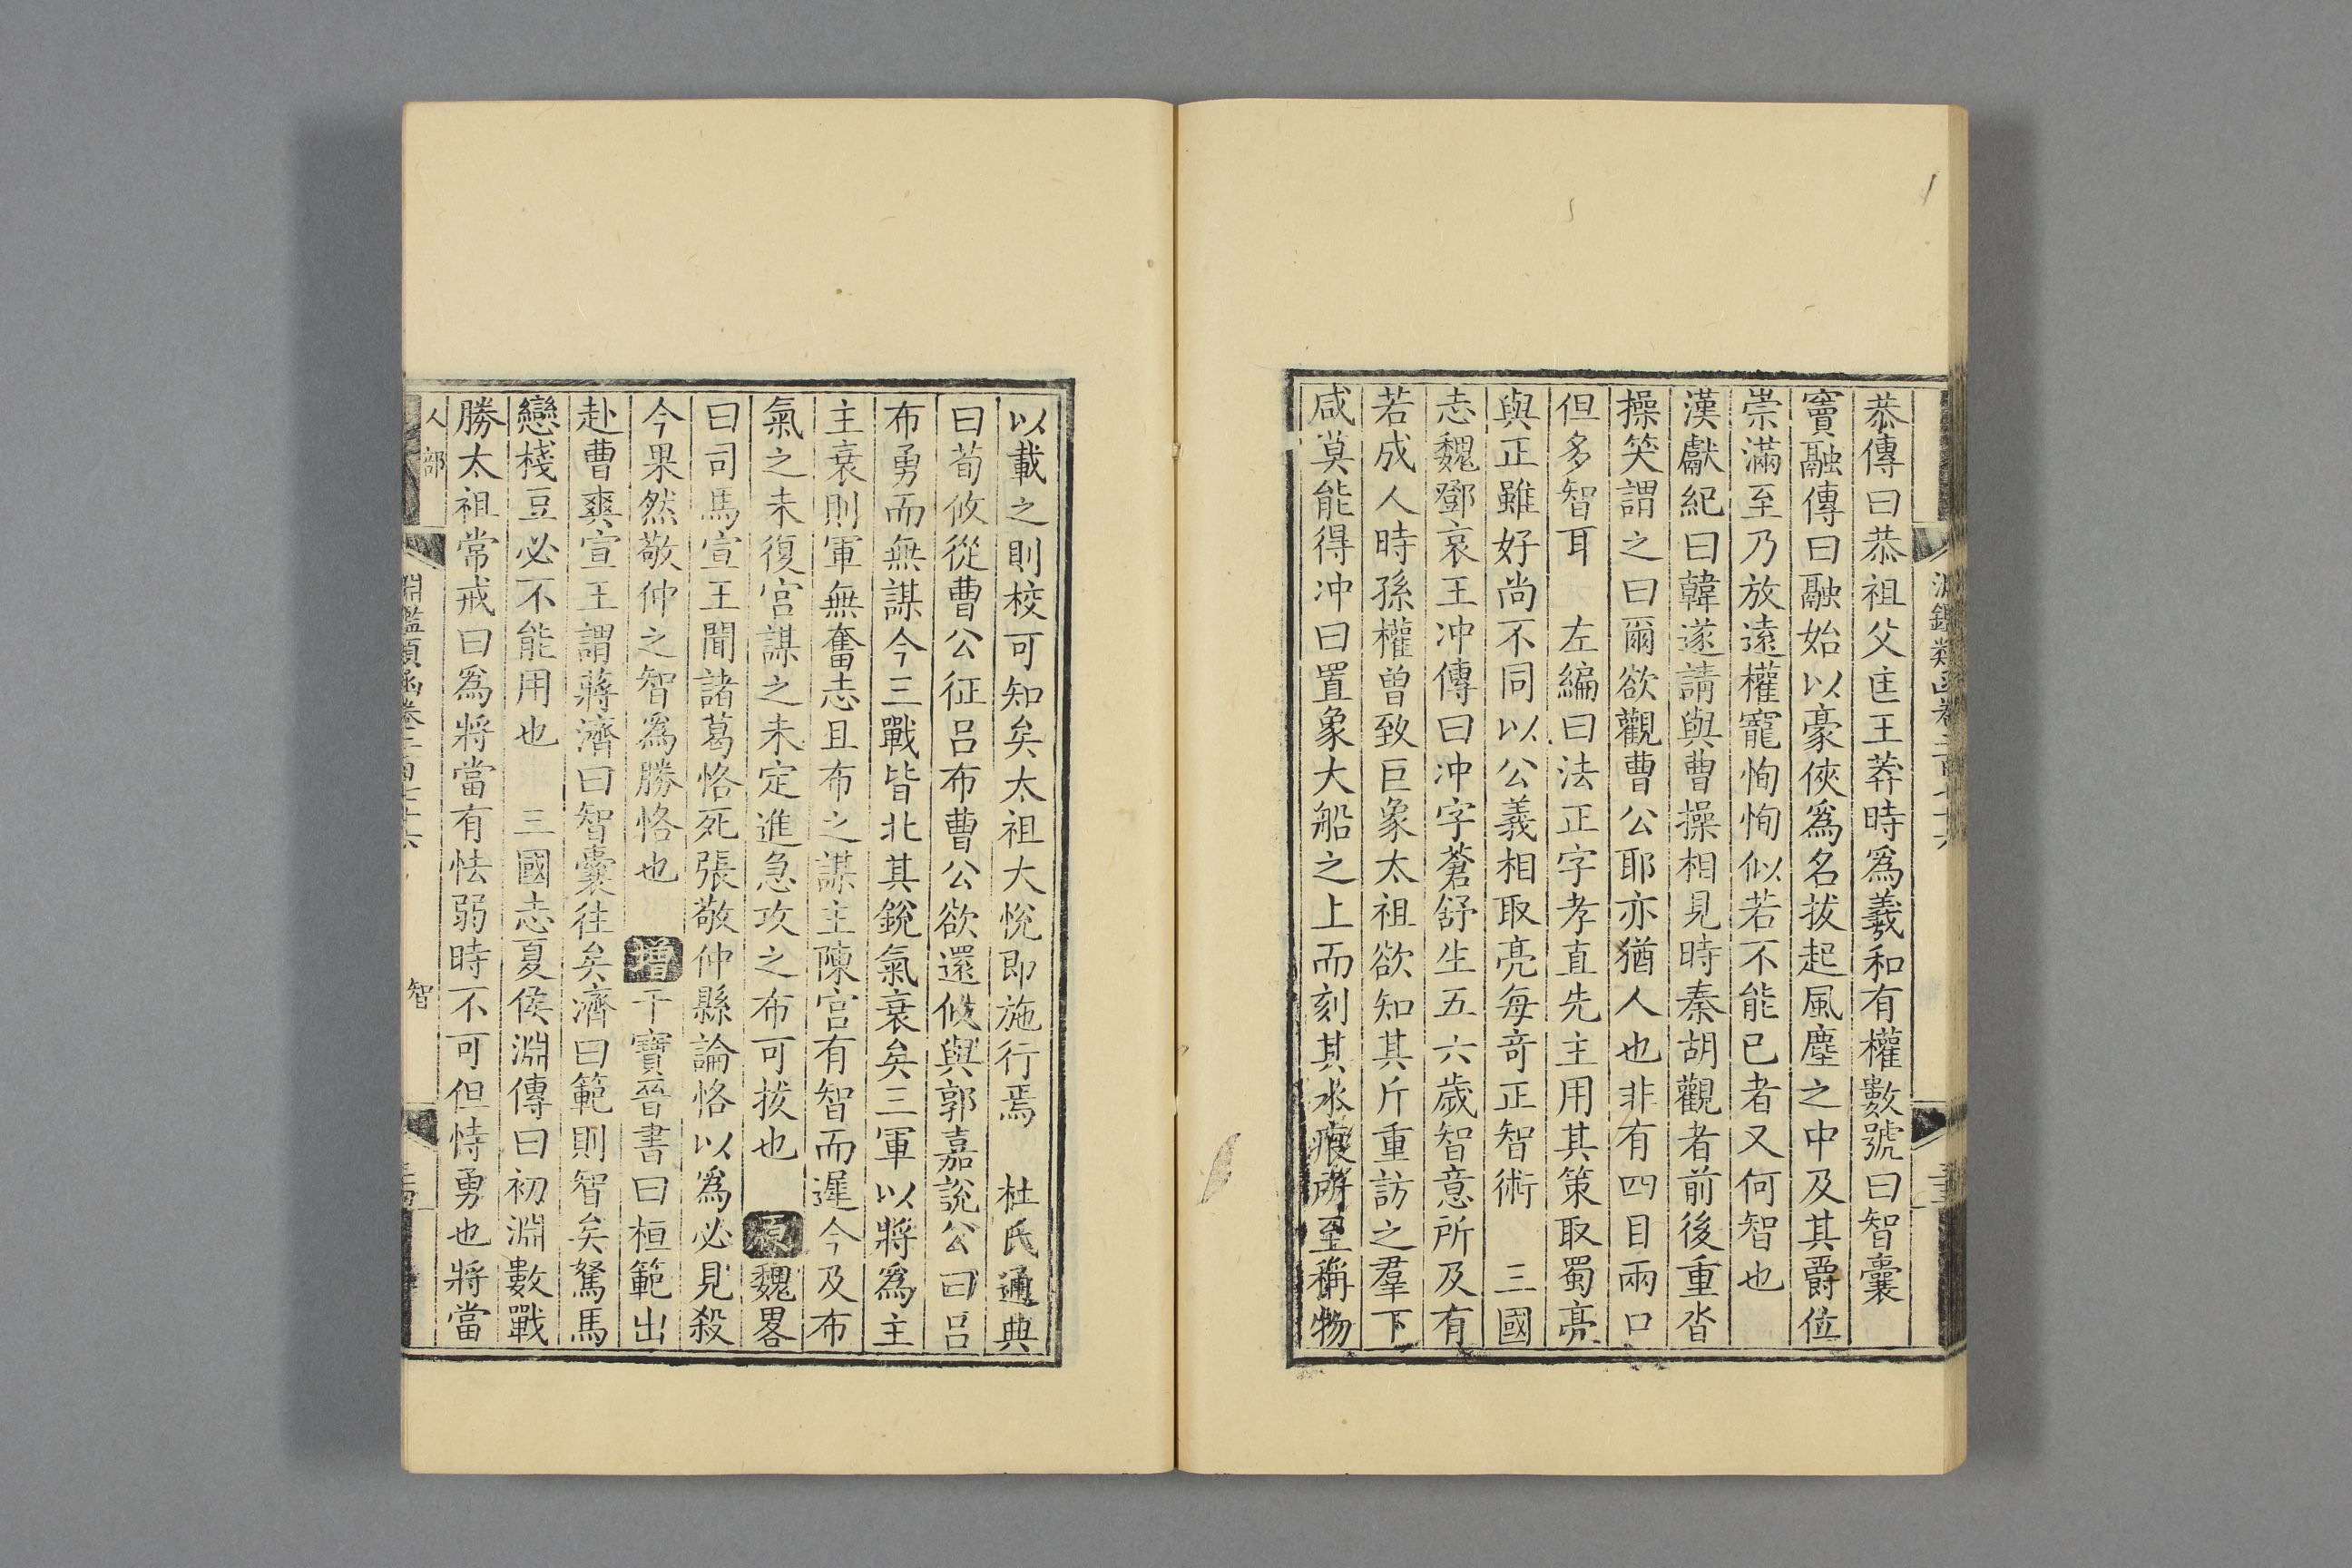 恭傳曰恭祖父匡王莽時爲羲和有權數號曰智囊
竇融傳曰融始以豪俠爲名拔起風塵之中及其爵位
崇滿至乃放遠權寵恂恂似若不能已者又何智也
漢獻紀曰韓遂請與曹操相見時秦胡觀者前後重沓
操笑謂之曰爾欲觀曹公耶亦猶人也非有四目兩口
但多智耳　左編曰法正字孝直先主用其策取蜀亮
與正雖好尚不同以公義相取亮每竒正智術　三國
志魏鄧哀王冲傳曰冲字蒼舒生五六歲智意所及有
若成人時孫權曾致巨象太祖欲知其斤重訪之羣下
咸莫能得冲曰置象大船之上而刻其水痕所至稱物
以載之則校可知矣太祖大悅即施行焉　杜氏通典
曰荀攸從曹公征呂布曹公欲還攸與郭嘉說公曰呂
布勇而無謀今三戰皆北其銳氣衰矣三軍以將爲主
主衰則軍無奮志且布之謀主陳宫有智而遲今及布
氣之未復宫謀之未定進急攻之布可拔也　原魏畧
曰司馬宣王聞諸葛恪死張敬仲縣論恪以爲必見殺
今果然敬仲之智爲勝恪也　增干寶晉書曰桓範出
赴曹爽宣王謂蔣濟曰智囊往矣濟曰範則智矣駑馬
戀棧豆必不能用也　三國志夏侯淵傳曰初淵數戰
勝太祖常戒曰爲將當有怯弱時不可但恃勇也將當
人部　淵鑑類函卷二百七十六　智